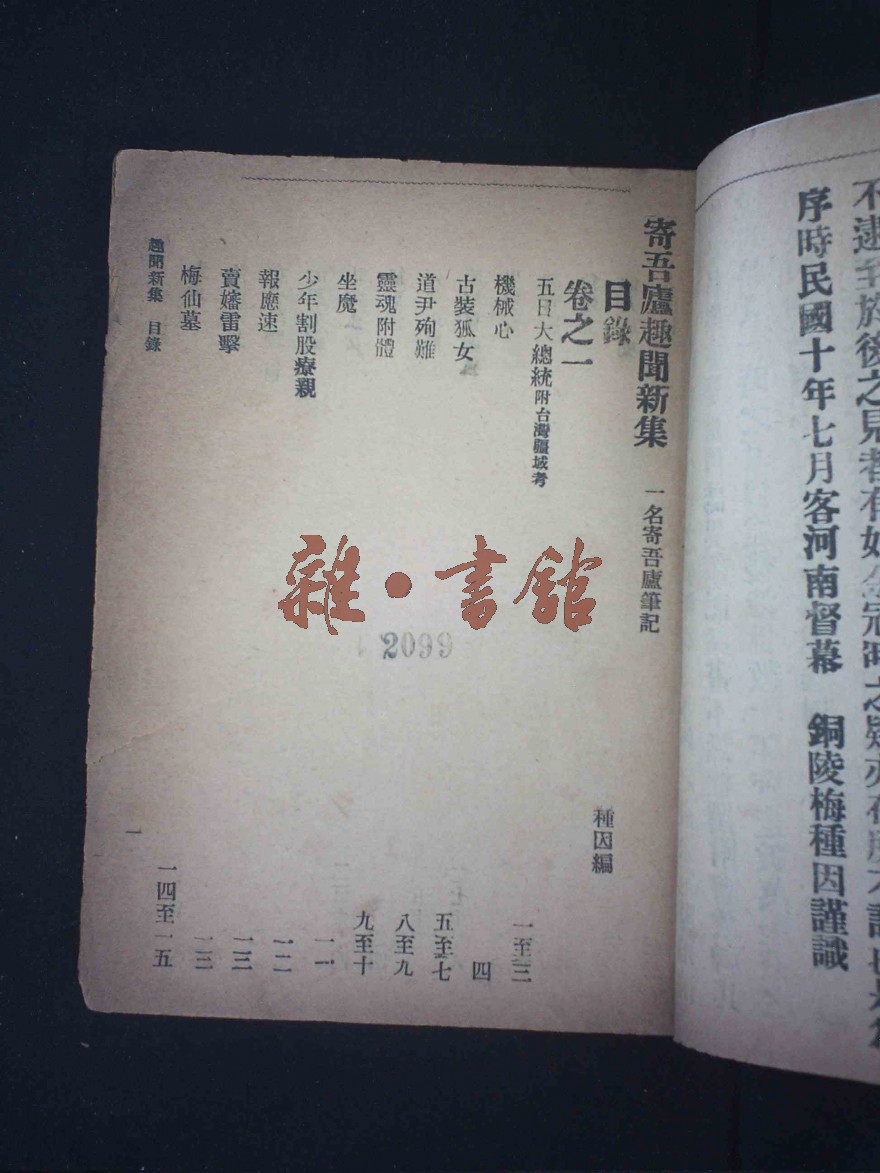 不逮至於後之見者有如金冠時之疑
序時民國十年七月客河南督幕　銅陵梅種因謹識
寄吾廬趣聞新集　一名寄吾廬筆記
目錄　種因編
卷之一
五日大總統附台灣疆域考　一至三
機械心　四
古裝狐女　五至七
道尹殉難　八至九
靈魂附體　九至十
坐魔　一一
少年割股療親　一二
報應速　一三
賣孀雷擊　一三
梅仙墓　一四至一五
趣聞新集　目錄　一
雜·書館
2099